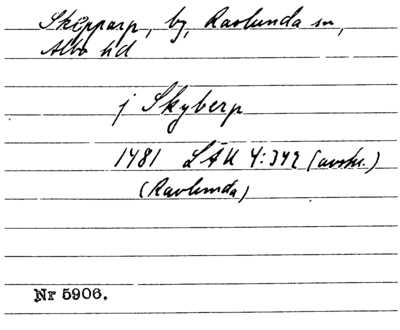 Skepparp, by, Ravlunda sn,
Albo hd
j Skyberp
1481 LÄU 4:349 (avskr.)
(Ravlunda)
Nr 5906.